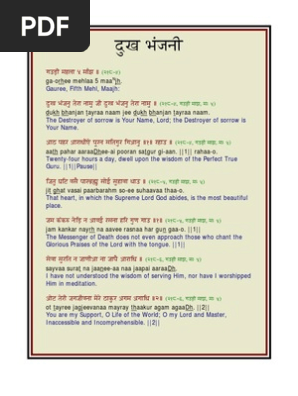 PDF
दुख भंजनी
गउड़ी महला ५ मांझ ॥ (२१८-੮)
ga-orhee mehlaa 5 maaNjh.
Gauree, Fifth Mehl, Maajh:
दुख भंजनु तेरा नामु जी दुख भंजनु तेरा नामु ॥
dukh bhanjan tayraa naam jee dukh bhanjan tayraa naam.
The Destroyer of sorrow is Your Name, Lord; the Destroyer of sorrow is
Your Name.
आठ पहर आराधीऐ पूरन सतिगुर गिआनु ॥१॥ रहाउ ॥
aath pahar aaraaDhee-ai pooran satgur gi-aan. ||1|| rahaa-o.
Twenty-four hours a day, dwell upon the wisdom of the Perfect True
Guru. ||1||Pause||
जितु घटि वसै पारब्रहमु सोई सुहावा थाउ ॥
jit ghat vasai paarbarahm so-ee suhaavaa thaa-o.
That heart, in which the Supreme Lord God abides, is the most beautiful
place.
जम कंकरु नेड़ि न आवई रसना हरि गुण गाउ ॥१॥
jam kankar nayrh na aavee rasnaa har gun gaa-o. ||1||
The Messenger of Death does not even approach those who chant the
Glorious Praises of the Lord with the tongue. ||1||
सेवा सुरति न जाणीआ ना जापै आराधि ॥
sayvaa surat na jaanee-aa naa jaapai aaraaDh.
I have not understood the wisdom of serving Him, nor have I worshipped
Him in meditation.
ओट तेरी जगजीवना मेरे ठाकुर अगम अगाधि ॥२॥
ot tayree jagjeevanaa mayray thaakur agam agaaDh. ||2||
You are my Support, O Life of the World; O my Lord and Master,
Inaccessible and Incomprehensible. ||2||